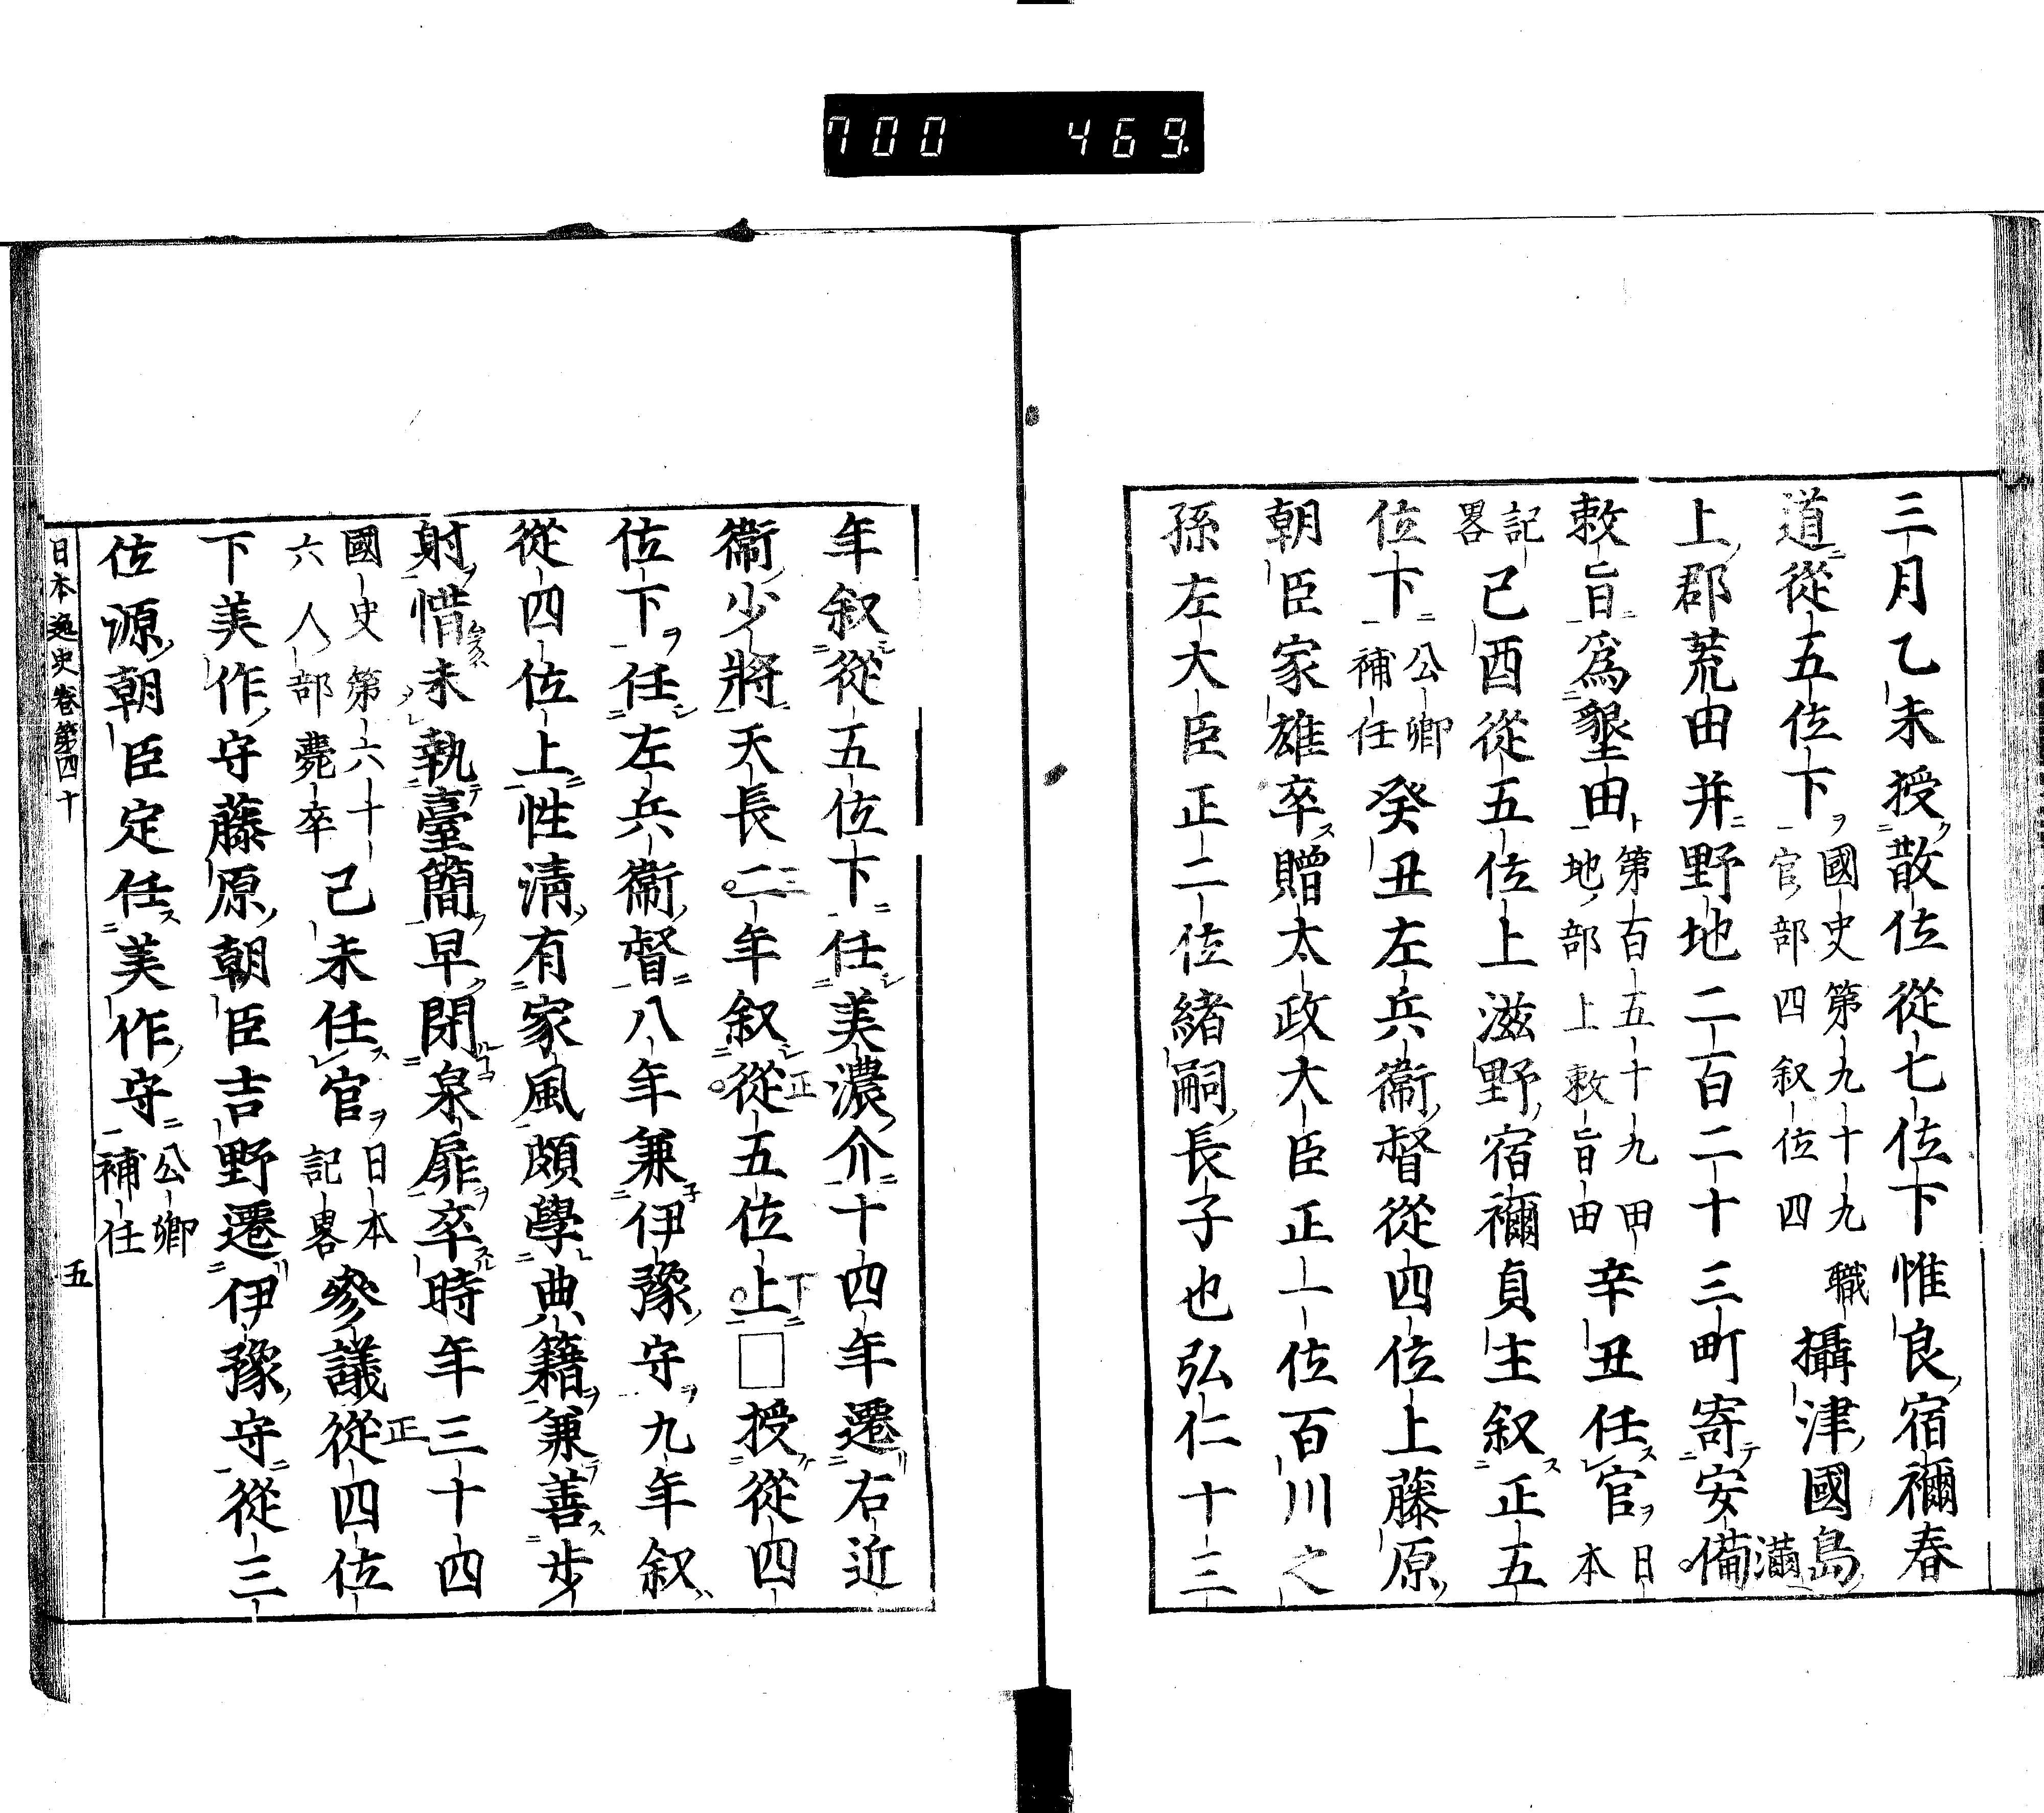 700 469
三月乙未授散位從七位下惟良宿禰春
道從五位下國史第九十九職官部四叙位四攝津國島
上郡荒田并野地二百二十三町寄安備滿
敕旨爲墾田第百五十九田地部上敕旨田辛丑任官日本
記畧己酉從五位上滋野宿禰貞主叙正五
位下公卿補任癸丑左兵衞督從四位上藤原
朝臣家雄卒贈太政大臣正一位百川之
孫左大臣正二位緒嗣長子也弘仁十三
年叙從五位下任美濃介十四年遷右近
衞少將天長二三年叙從正五位上下□授從四
位下任左兵衞督八年兼伊豫守九年叙
從四位上性淸有家風頗學典籍兼善步
射惜未執臺簡早閉泉扉卒時年三十四
國史第六十六人部薨卒己未任官日本記畧參議從正四位
下美作守藤原朝臣吉野遷伊豫守從三
位源朝臣定任美作守公卿補任
日本逸史卷第四十 五